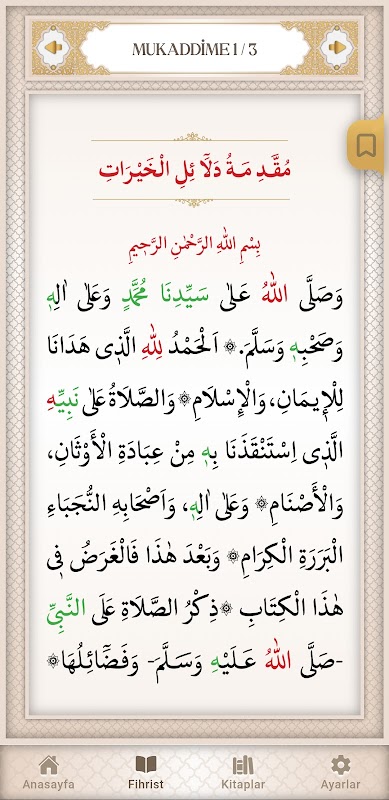 MUKADDİME 1 / 3
مُقَدِّمَةُ دَلَآئِلِ الْخَيْرَاتِ
بِسْمِ اللهِ الرَّحْمٰنِ الرَّحِيمِ
وَصَلَّى اللهُ عَلٰى سَيِّدِنَا مُحَمَّدٍ وَعَلٰى اٰلِهٖ
وَصَحْبِهٖ وَسَلَّمَ.۞ اَلْحَمْدُ لِلهِ الَّذٖى هَدَانَا
لِلْاٖيمَانِ، وَالْاِسْلَامِ۞ وَالصَّلَاةُ عَلٰى نَبِيِّهِ
الَّذٖى اِسْتَنْقَذَنَا بِهٖ مِنْ عِبَادَةِ الْأَوْثَانِ،
وَالْأَصْنَامِ۞ وَعَلٰى اٰلِهٖ، وَاَصْحَابِهِ النُّجَبَاءِ
الْبَرَرَةِ الْكِرَامِ۞ وَبَعْدَ هٰذَا فَالْغَرَضُ فٖى
هٰذَا الْكِتَابِ ۞ذِكْرُ الصَّلَاةِ عَلَى النَّبِيِّ
-صَلَّى اللهُ عَلَيْهِ وَسَلَّمَ- وَفَضَٓائِلُهَا۞
Anasayfa Fihrist Kitaplar Ayarlar